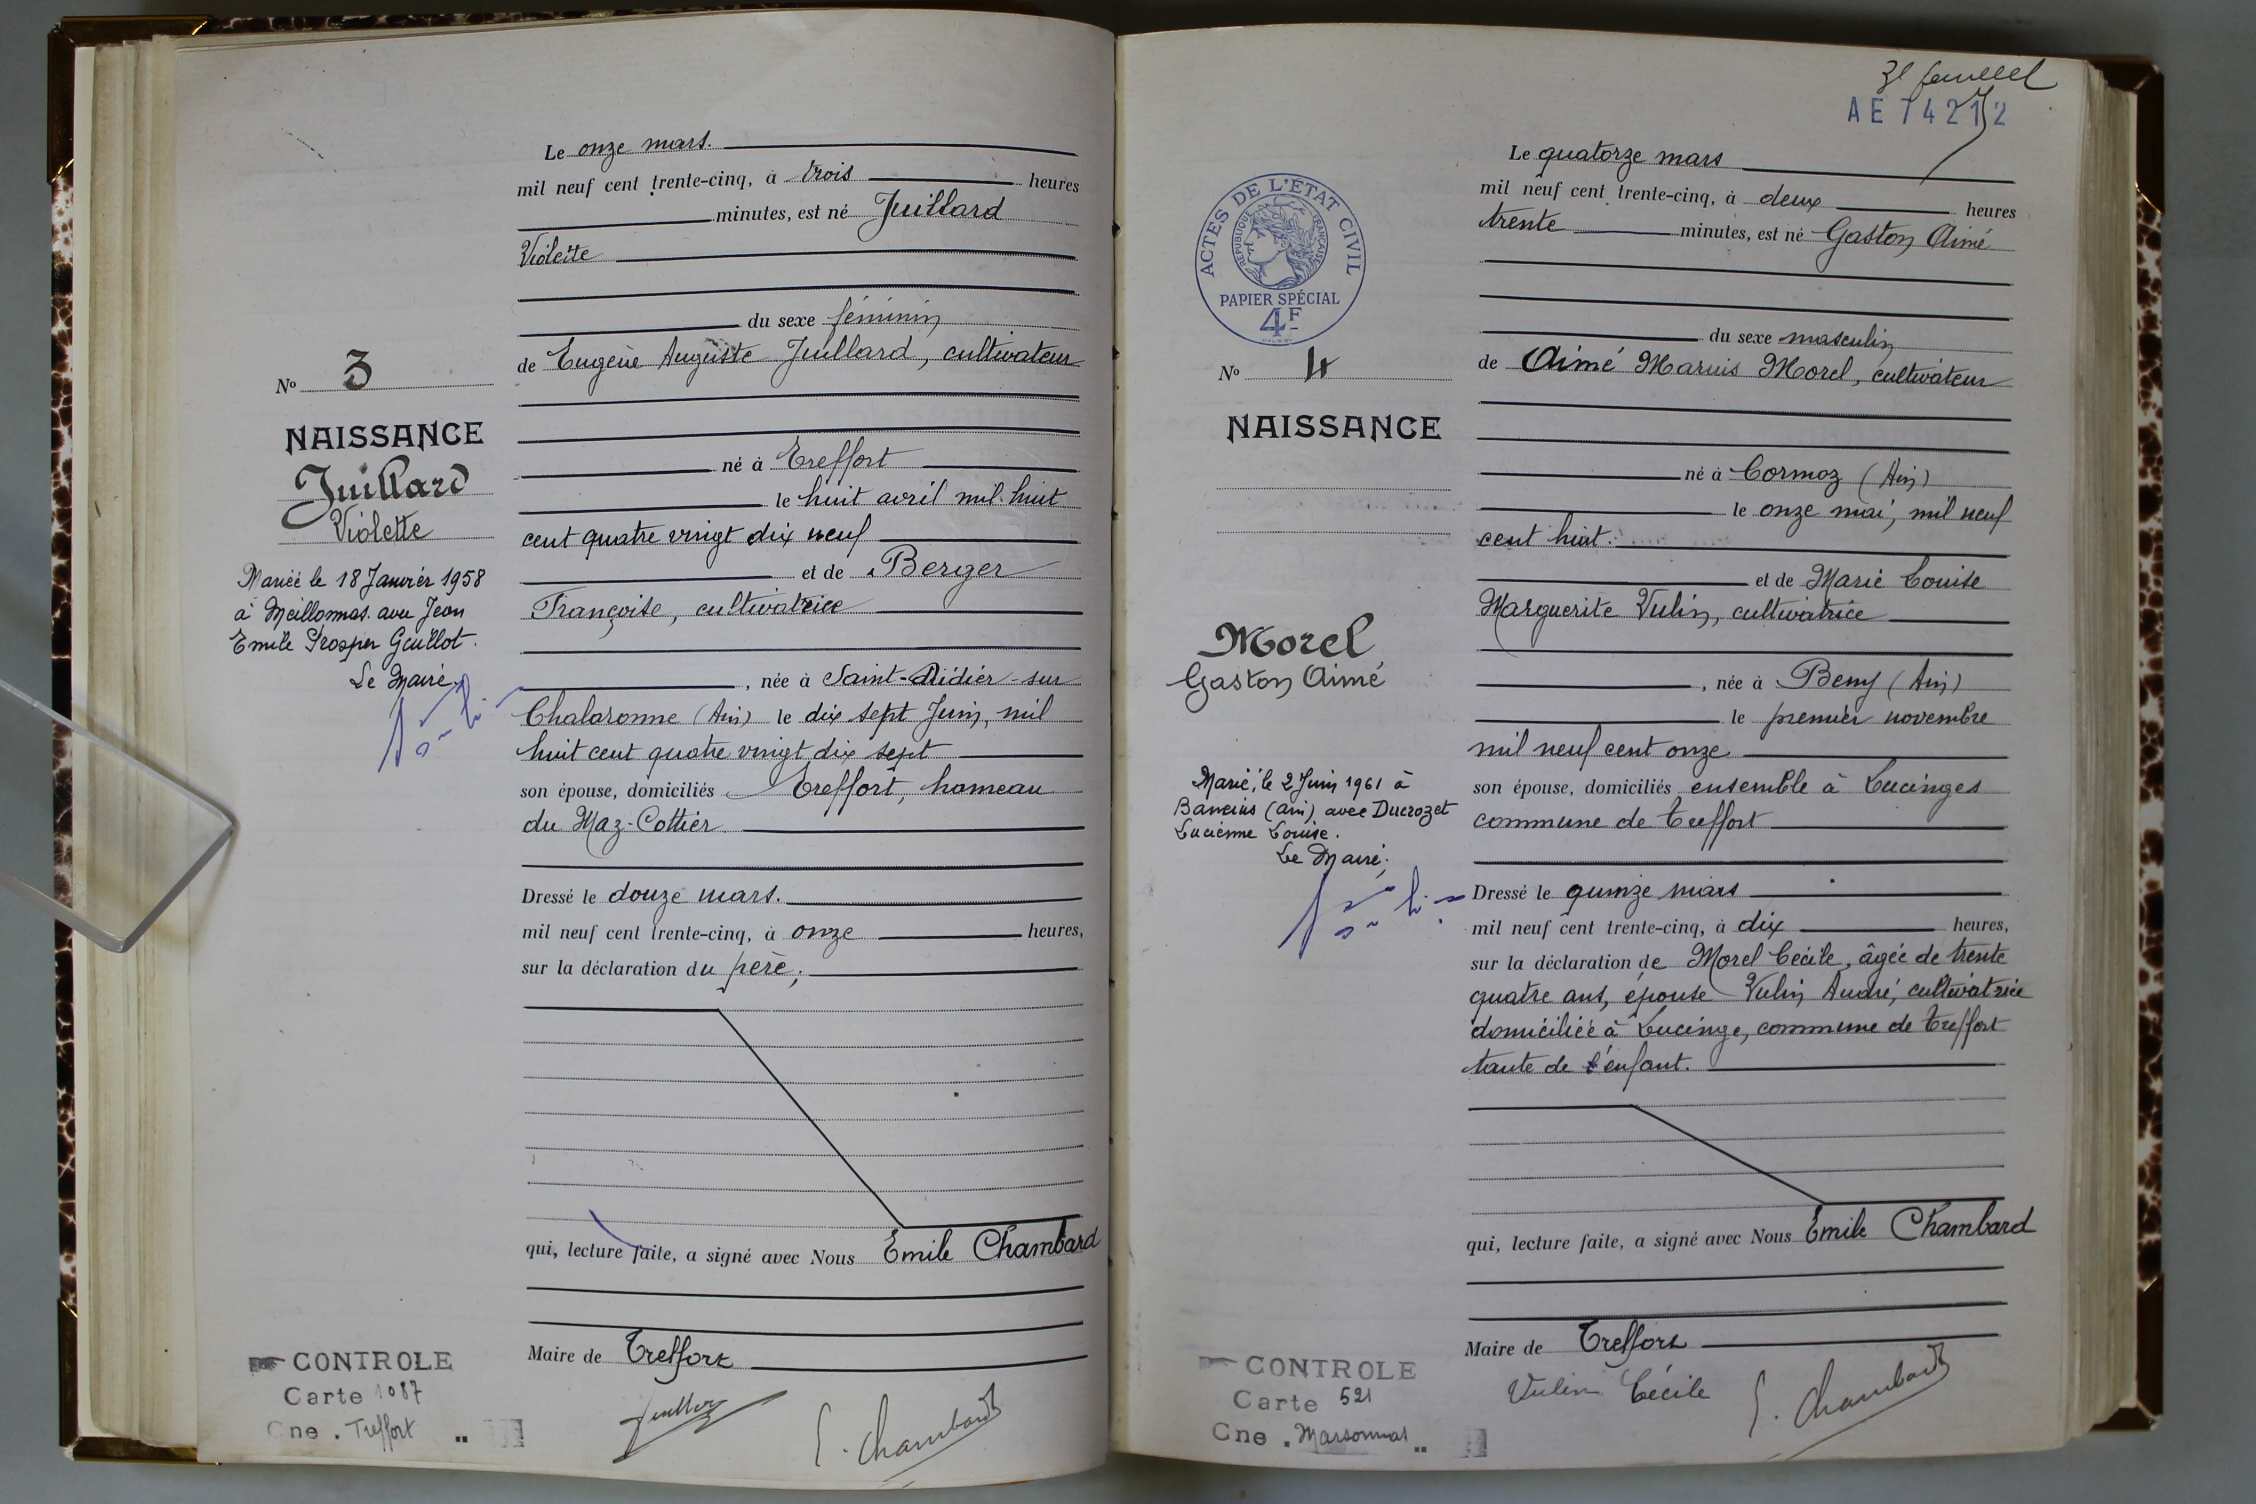 Le onze mars.
mil neuf cent trente-cinq, à trois heures
minutes, est né Juillard
Violette
du sexe féminin
de Eugène Auguste Juillard, cultivateur
No 3
NAISSANCE
Juillard
Violette
Mariée le 18 Janvier 1958
à Meillonnas avec Jean
Emile Prosper Guillot.
Le Maire,
né à Treffort
le huit avril mil huit
cent quatre vingt dix neuf
et de Berger
Françoise, cultivatrice
, née à Saint-Didier-sur
Chalaronne (Ain) le dix sept Juin, mil
huit cent quatre vingt dix sept
son épouse, domiciliés Treffort, hameau
du Maz-Cottier
Dressé le douze mars.
mil neuf cent trente-cinq, à onze heures,
sur la déclaration du père,
qui, lecture faite, a signé avec Nous Emile Chambard
Maire de Treffort
Juillard
E. Chambard
CONTROLE
Carte 1087
Cne . Treffort
3e feuillet
AE 74212
Le quatorze mars
mil neuf cent trente-cinq, à deux heures
trente minutes, est né Gaston Aimé
du sexe masculin
de Aimé Marius Morel, cultivateur
ACTES DE L'ÉTAT CIVIL
RÉPUBLIQUE FRANÇAISE
PAPIER SPÉCIAL
4F
No 4
NAISSANCE
Morel
Gaston Aimé
Marié, le 2 Juin 1961 à
(Ain) avec Ducrozet
Lucienne Louise.
Le Maire,
né à Cormoz (Ain)
le onze mai, mil neuf
cent huit.
et de Marie Louise
Marguerite Vulin, cultivatrice
, née à Beny (Ain)
le premier novembre
mil neuf cent onze
son épouse, domiciliés ensemble à Lucinges
commune de Treffort
Dressé le quinze mars
mil neuf cent trente-cinq, à dix heures,
sur la déclaration de Morel Cécile, âgée de trente
quatre ans, épouse Vulin André, cultivatrice
domiciliée à Lucinge, commune de Treffort
tante de l'enfant.
qui, lecture faite, a signé avec Nous Emile Chambard
Maire de Treffort
Vulin Cécile
E. Chambard
CONTROLE
Carte 521
Cne . Marsonnas